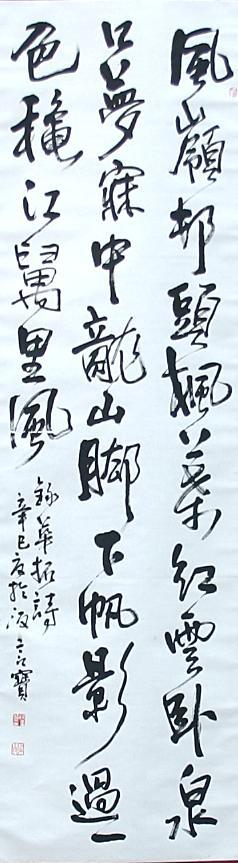 風嶺邨頭楓葉紅雲卧泉
口夢寐中龍山脚下帆影過一
色穐江萬里風
錄華拓詩
辛巳夏於寶